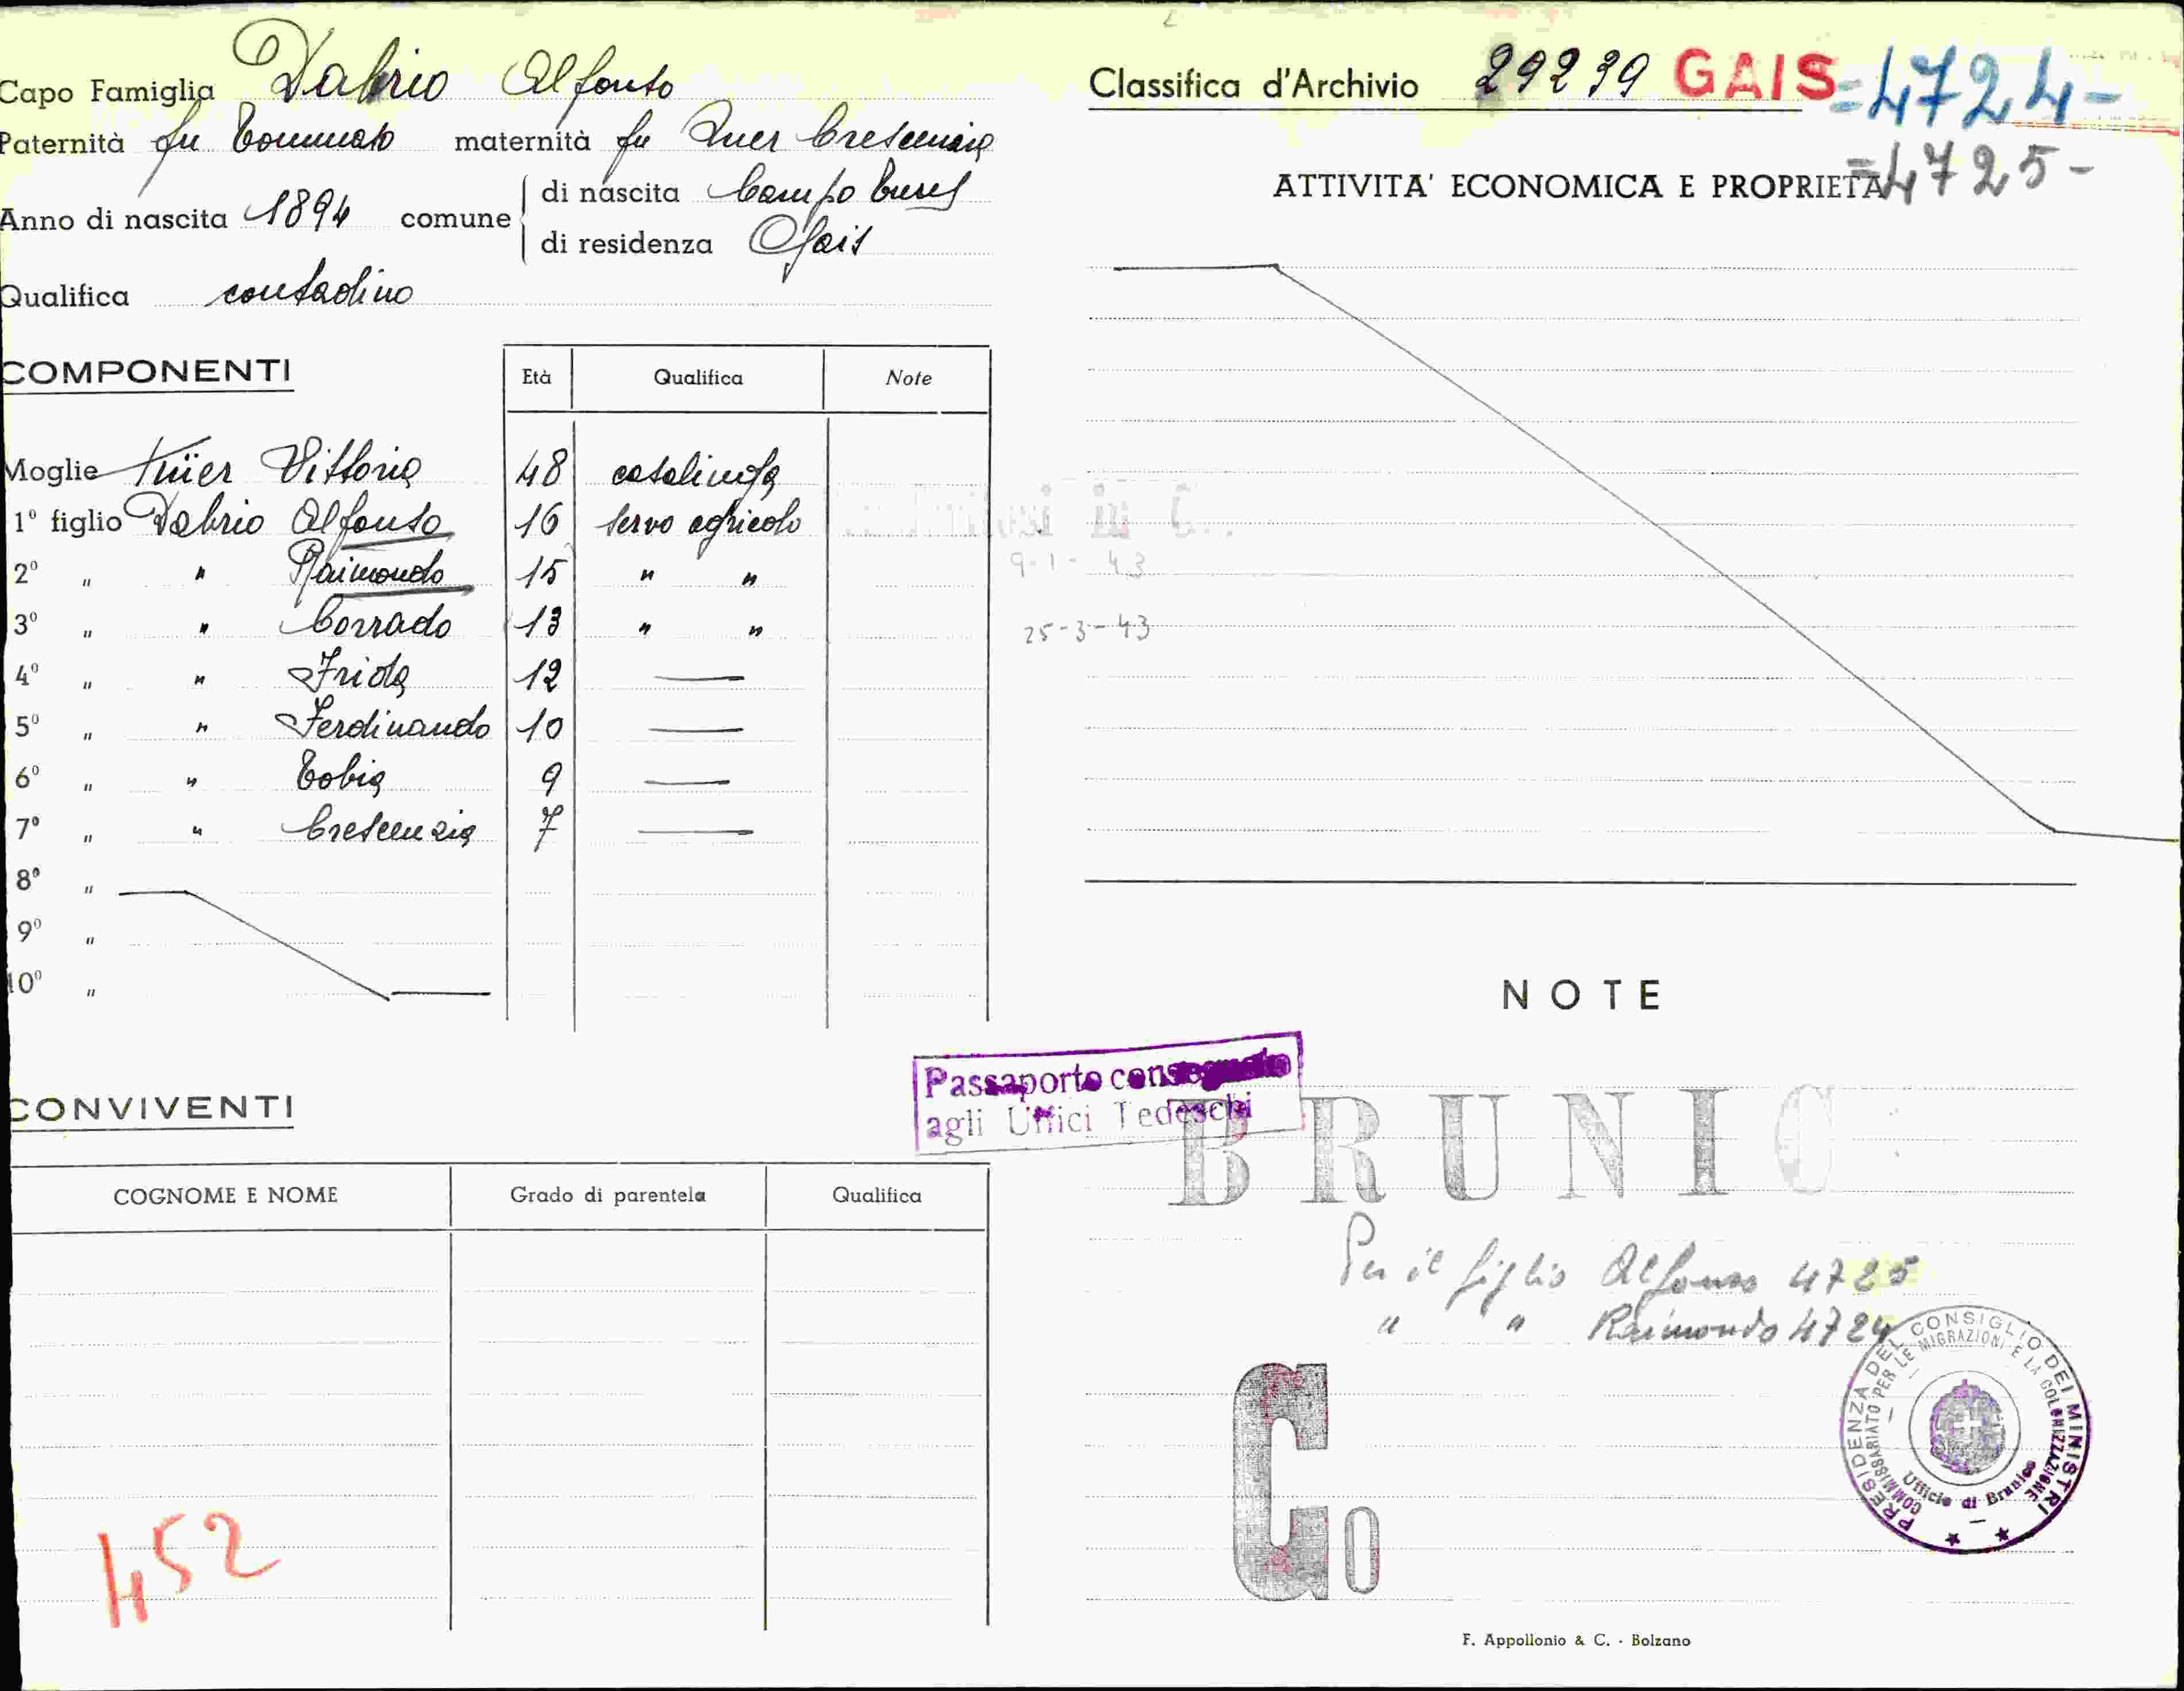 Capo Famiglia Dabrio Alfonso
Paternità fu Tommaso maternità fu Auer Crescenzia
Anno di nascita 1894 comune di nascita Campo Tures
di residenza Gais
Qualifica contadino
COMPONENTI
Età Qualifica Note
Moglie Vittoria 48 casalinga
1º figlio Dabrio Alfonso 16 servo agricolo
2º " " Raimondo 15 " "
3º " " Corrado 13 " "
4º " " Frida 12 —
5º " " Ferdinando 10 —
6º " " Tobia 9 —
7º " " Crescenzia 7 —
8º "
9º "
10º "
CONVIVENTI
COGNOME E NOME Grado di parentela Qualifica
452
Classifica d'Archivio 29239 GAIS =4724-
=4725-
ATTIVITA' ECONOMICA E PROPRIETA'
9-1-43
25-3-43
NOTE
Passaporto consegnato
agli Uffici Tedeschi
BRUNIC
Per il figlio Alfonso 4725
" " Raimondo 4724
Co
PRESIDENZA DEL CONSIGLIO DEI MINISTRI
COMMISSARIATO PER LE MIGRAZIONI E LA COLONIZZAZIONE
Ufficio di Brunico
F. Appollonio & C. - Bolzano